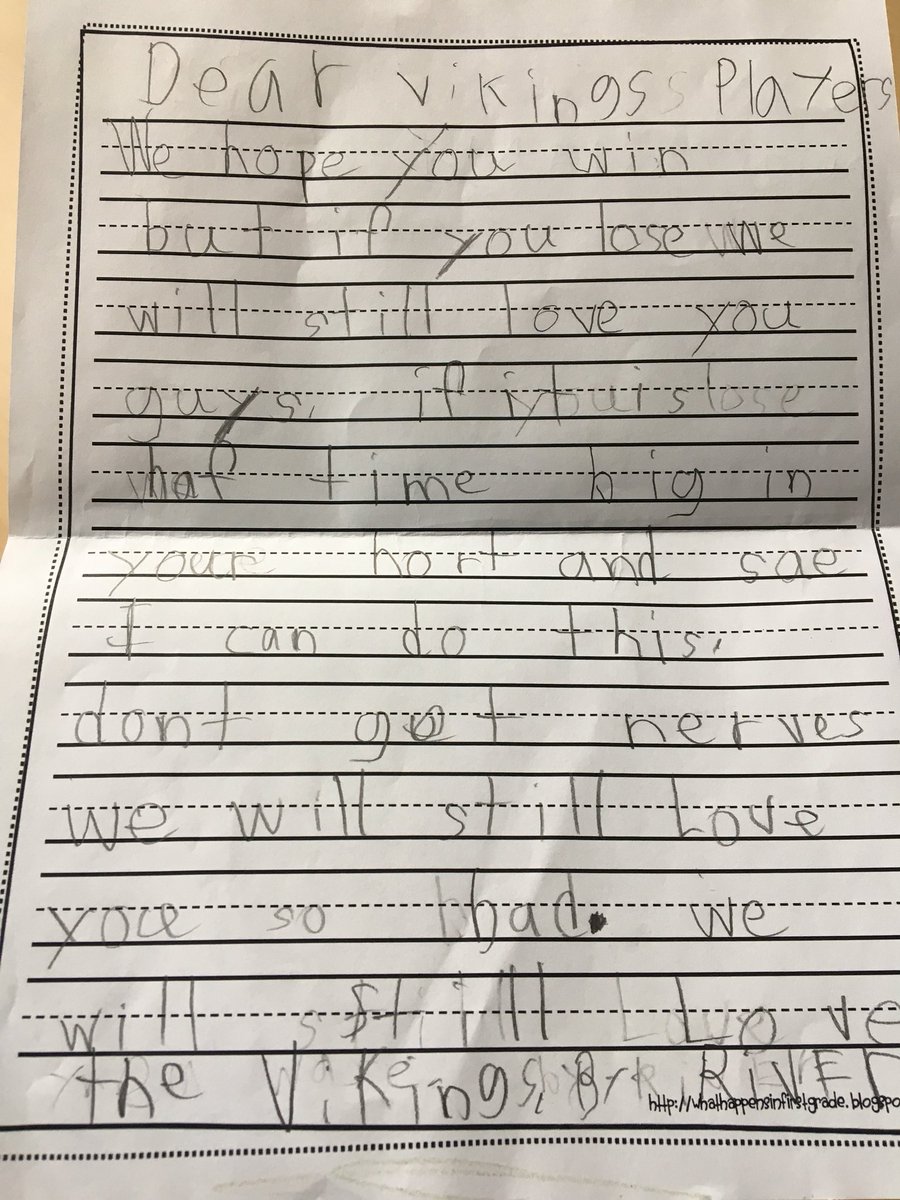 Dear vikings Players
We hope you win
but if you lose we
will still love you
guys. if you lose
what time big in
your hort and sae
I can do this.
dont get nerves
we will still Love
you so bad. we
will still Love
the Vikings. RiVER
http://whathappensinfirstgrade.blogspo